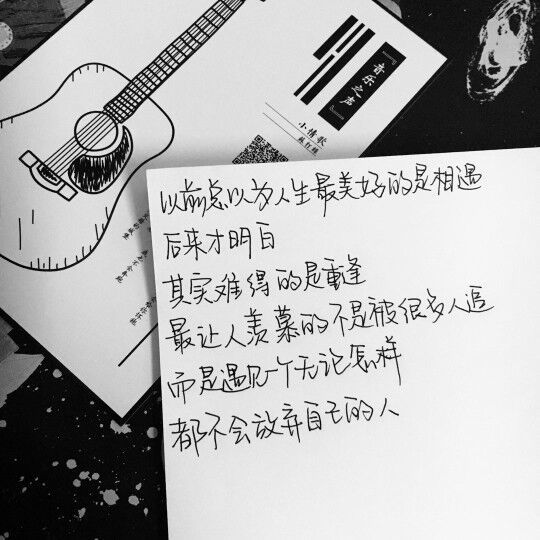 『音乐之声』
小情歌
以前总以为人生最美好的是相遇
后来才明白
其实难得的是重逢
最让人羡慕的不是被很多人追
而是遇见一个无论怎样
都不会放弃自己的人